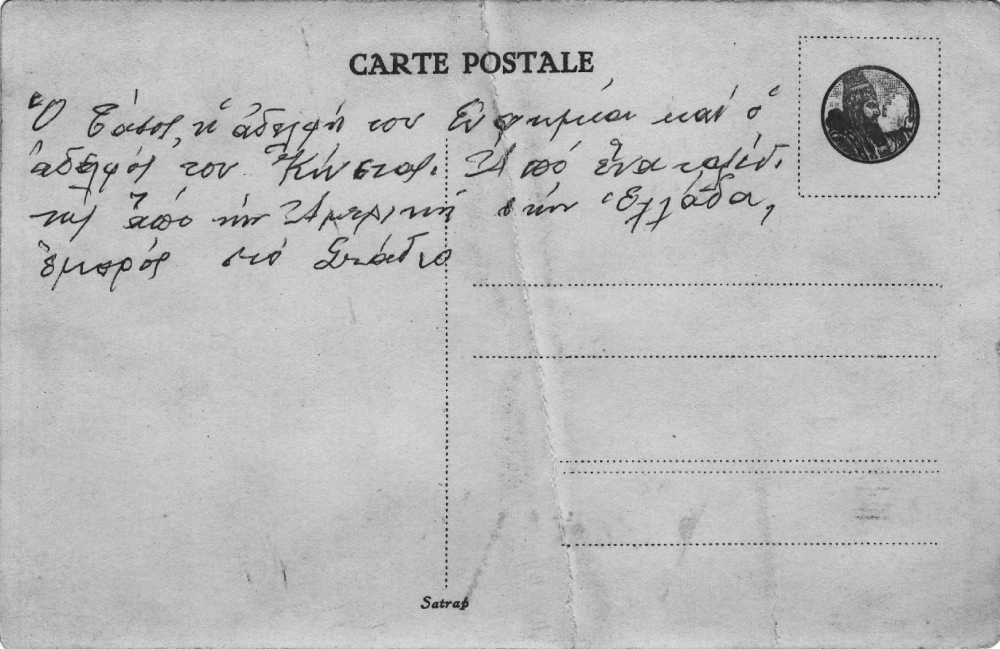 CARTE POSTALE
Ὁ Τάσος, ἡ ἀδελφή του Εὐφημία καί ὁ
ἀδελφός του Κώστας. Ἀπό ἕνα ταξίδι
της ἀπό την Ἀμερική στήν Ἑλλάδα,
ἐμπρός στό Στάδιο
Satrap